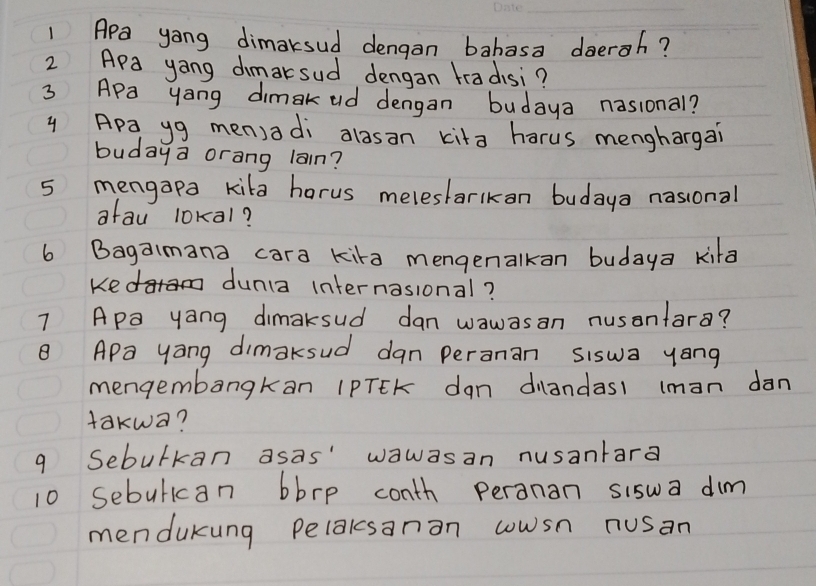 Date
1 Apa yang dimaksud dengan bahasa daerah?
2 Apa yang dimaksud dengan tradisi?
3 Apa yang dimakud dengan budaya nasional?
4 Apa yg menjadi alasan kita harus menghargai
budaya orang lain?
5 mengapa kita harus melestarikan budaya nasional
atau lokal?
6 Bagaimana cara kita mengenalkan budaya kita
ke dunia internasional?
7 Apa yang dimaksud dgn wawasan nusantara?
8 Apa yang dimaksud dgn peranan siswa yang
mengembangkan IPTEK dgn dilandasi iman dan
takwa?
9 Sebutkan asas' wawasan nusantara
10 Sebutkan bbrp conth peranan siswa dlm
mendukung pelaksanan wwsn nusan